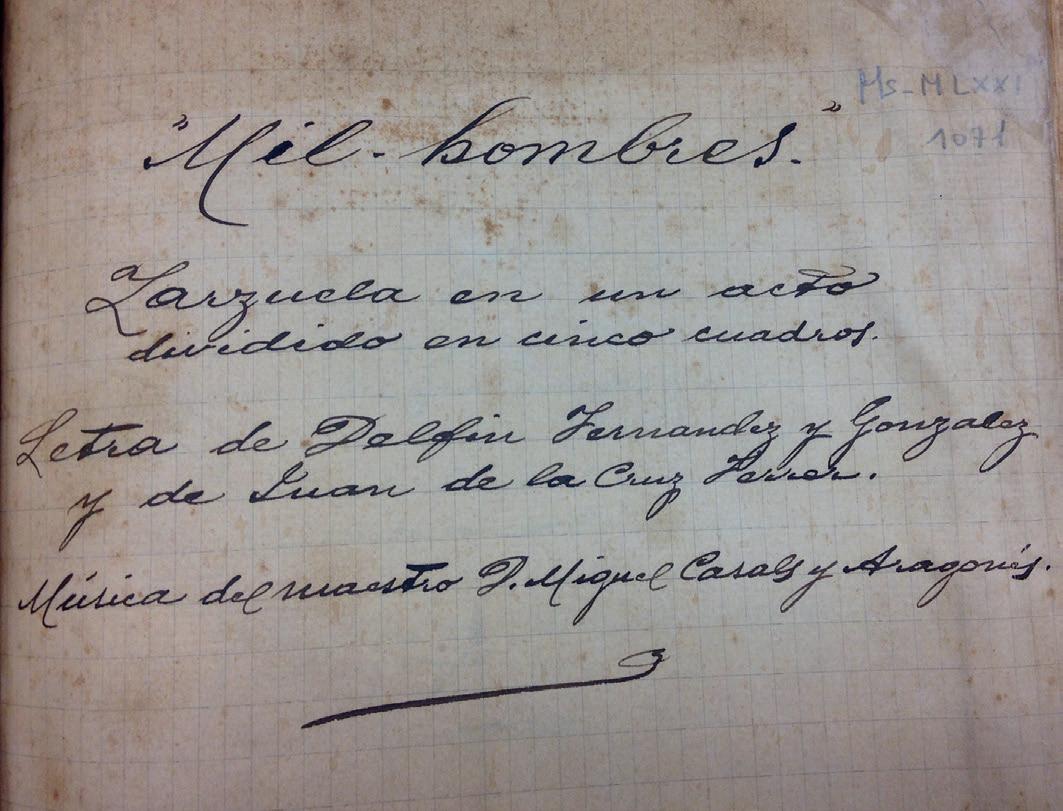 Ms-MLXXI
1071
"Mil-hombres."
Zarzuela en un acto
dividido en cinco cuadros.
Letra de Delfin Fernandez y Gonzalez
y de Juan de la Cruz Ferrer.
Música del maestro D. Miguel Casals y Aragonés.